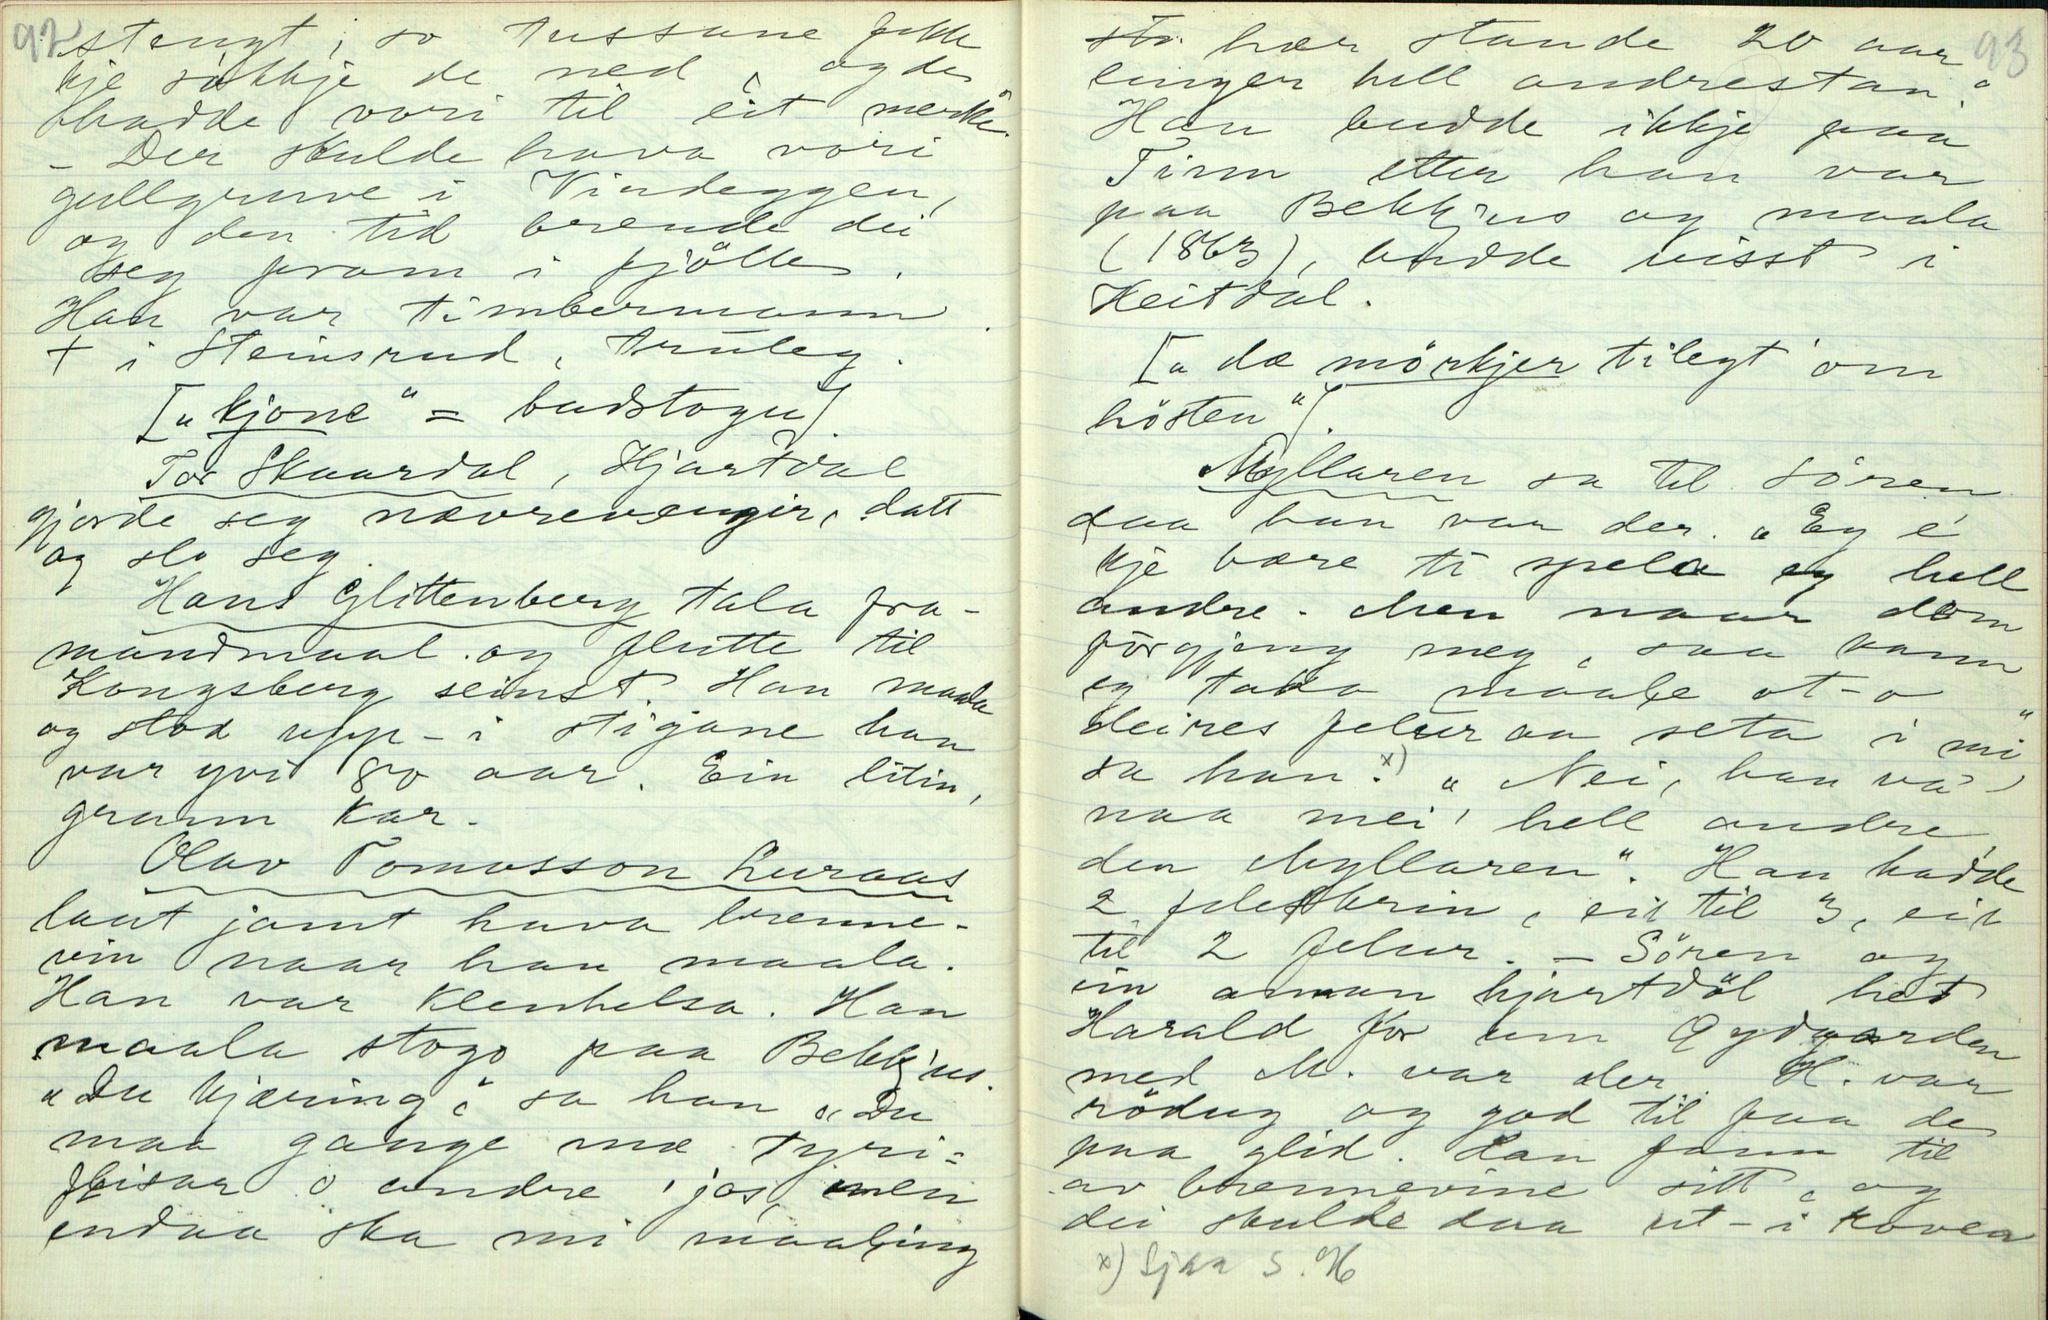 92
stengt, so tussane fekk
kje søkkje de ned, og de
hadde vori til eit merke.
- Der skulde hava vori
gullgruve i Vindeggen,
og den tid brende dei
seg fram i fjølle.
Han var timbermann.
+ i Steinsrud, truleg.
[„kjone" = badstogu].
Tor Skaardal, Hjartdal
gjorde seg nævrevengir, datt
og slo seg.
Hans Glittenberg tala fra-
mandmaal og flutte til
Kongsberg seinst. Han maala
og stod upp-i stigane han
var yvi 80 aar. Ein litin,
grann kar.
Olav Tomasson Luraas
laut jamt hava brenne-
vin naar han maala.
Han var klenhelsa. Han
maala stogo paa Bekkjus.
„Du kjæring," sa han, „Du
maa gange mæ tyri-
flisar o andre ljos, men
endaa ska mi maaling
93
sto her stande 20 aar
lenger hell andrestan."
Han budde ikkje paa
Tinn etter han var
paa Bekkjus og maala
(1863), budde visst i
Heitdal.
[„dæ mørkjer tilegt om
hösten"].
Myllaren sa til Sören,
daa han var der. „Eg é
kje bære ti spela eg hell
andre. Men naar dom
förgjeng meg, saa kann
eg taka maale ut-o
deires felur aa seta i mi"
sa han. x) „Nei, han va
naa mei' hell andre,
den Myllaren". Han hadde
2 feleskrin, eit til 3, eit
til 2 felur. - Sören og
ein annan hjartdöl het
Harald for um Øygarden
med M. var der. H. var
rödug og god til faa de
paa glid. Han fann til
av brennevine sitt, og
dei skulde daa ut-i koven
x) Sjaa S. H